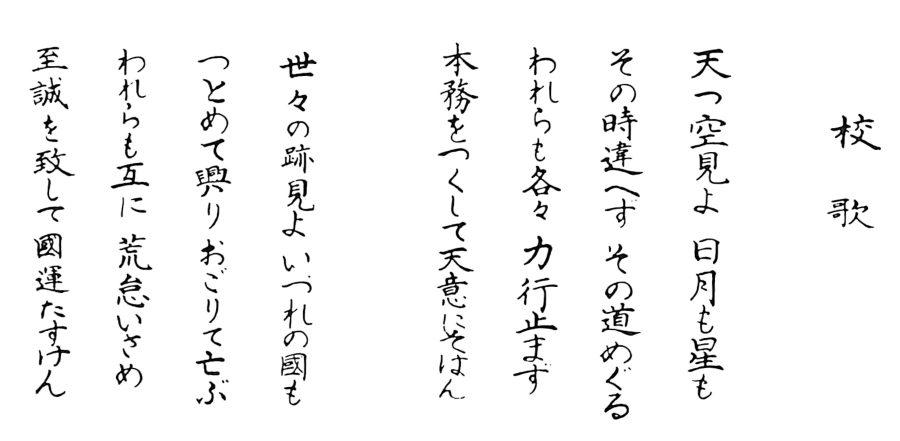 校歌
天つ空見よ 日月も星も
その時違へず その道めぐる
われらも各々 力行止まず
本務をつくして天意にそはん
世々の跡見よ いづれの國も
つとめて興り おごりて亡ぶ
われらも互に 荒怠いさめ
至誠を致して國運たすけん